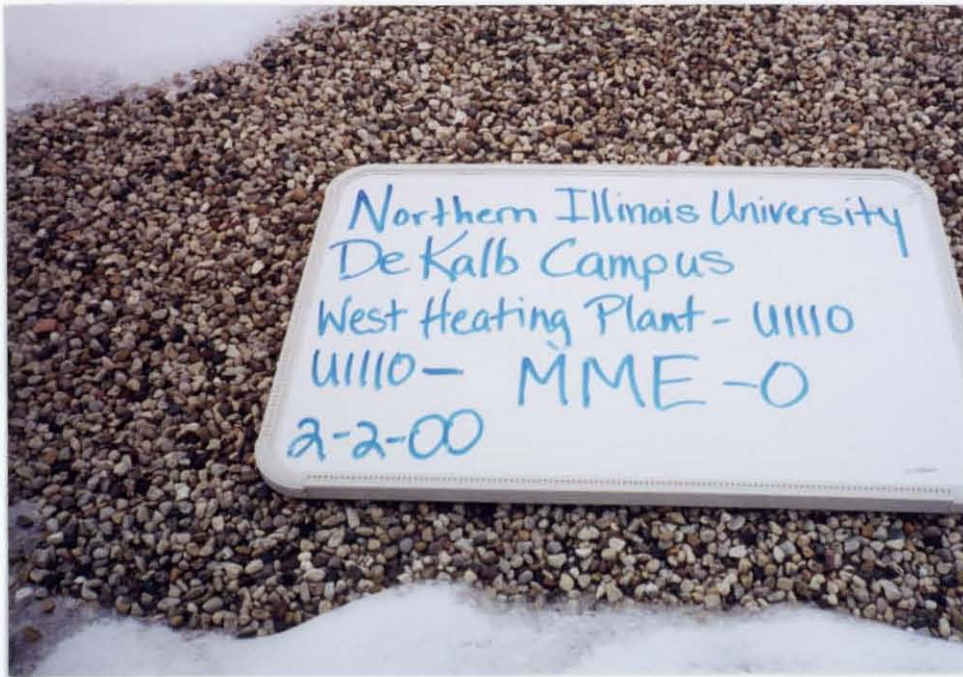 Northern Illinois University
De Kalb Campus
West Heating Plant - U1110
U1110 - MME - O
2-2-00